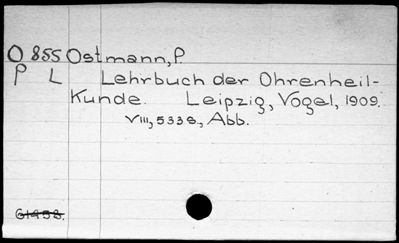 O 855 Ostmann, P.
P L Lehrbuch der Ohrenheil-
Kunde. Leipzig, Vogel, 1909.
VIII, 533 S., Abb.
61453.